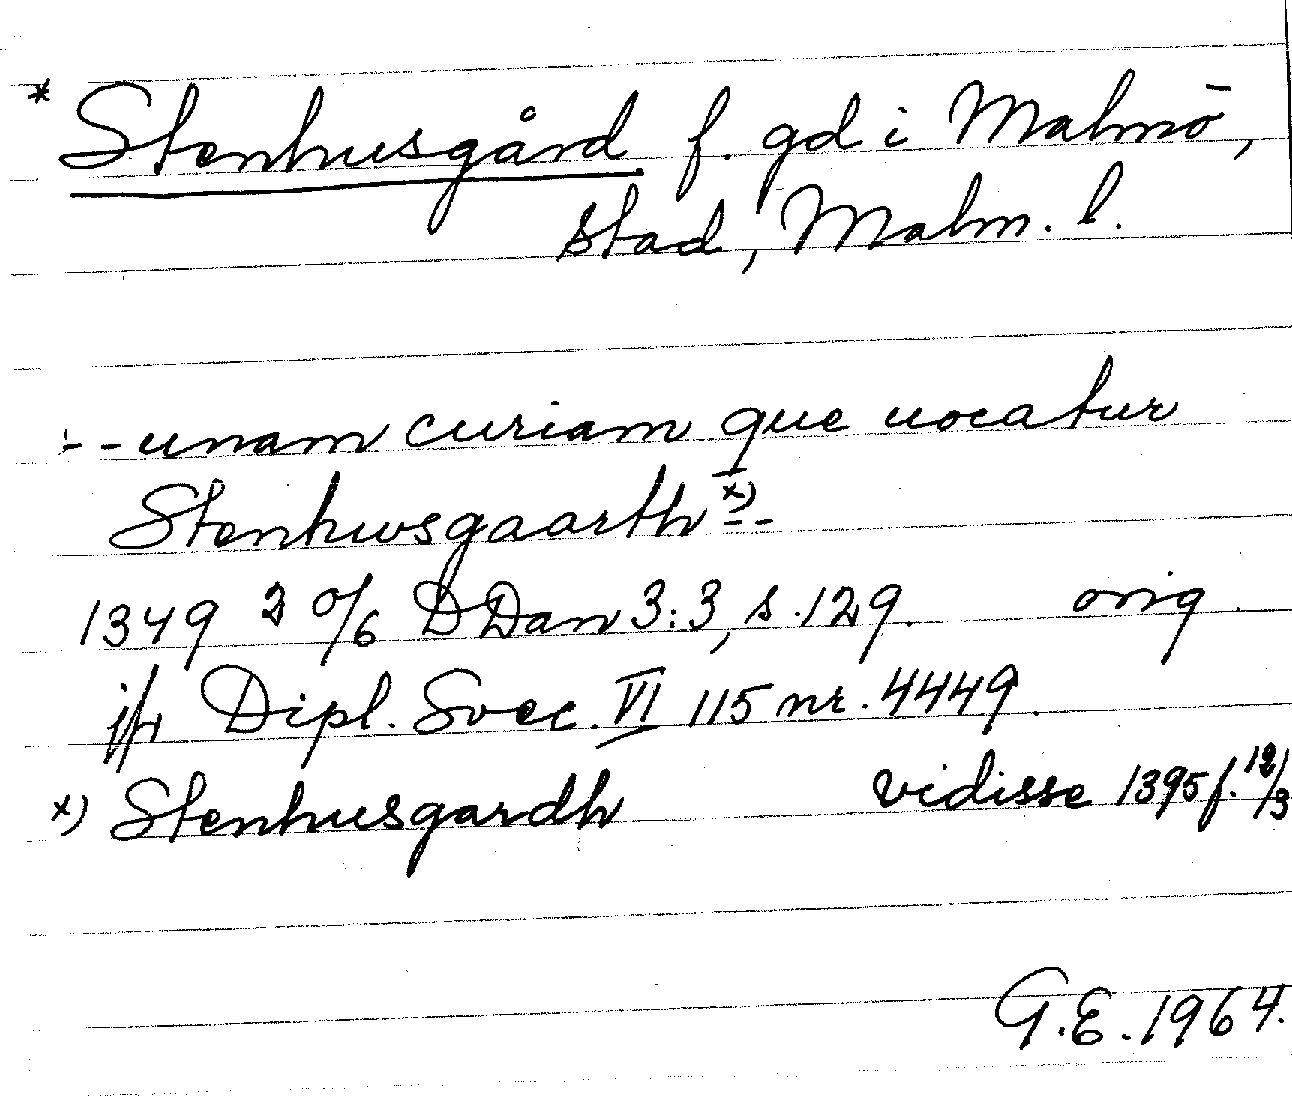 * Stenhusgård f. gd i Malmö,
stad, Malm. l.
-- unam curiam que uocatur
Stenhwsgaarth x) --
1349 20/6 DDan 3:3, s. 129. orig.
jfr Dipl. Svec. VI 115 nr. 4449.
x) Stenhusgardh vidisse 1395 f. 12/3
G.E. 1964.